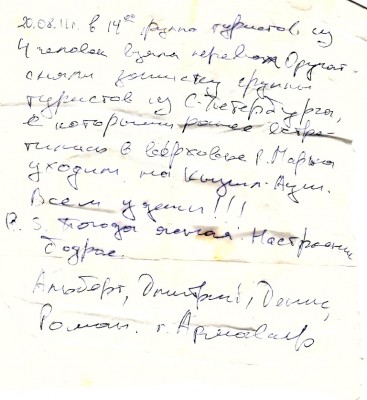 20.08.11г. в 14⁰⁰ группа туристов из
4 человек взяла перевал
сняли записку группы
туристов из С-Петербурга,
с которыми ранее встре-
тились в верховье р. Марка
уходим на Кышл-Ауш.
Всем удачи!!!
P.S погода ясная. Настроение
бодрое.
Альберт, Дмитрий, Денис,
Роман. г. Армавир